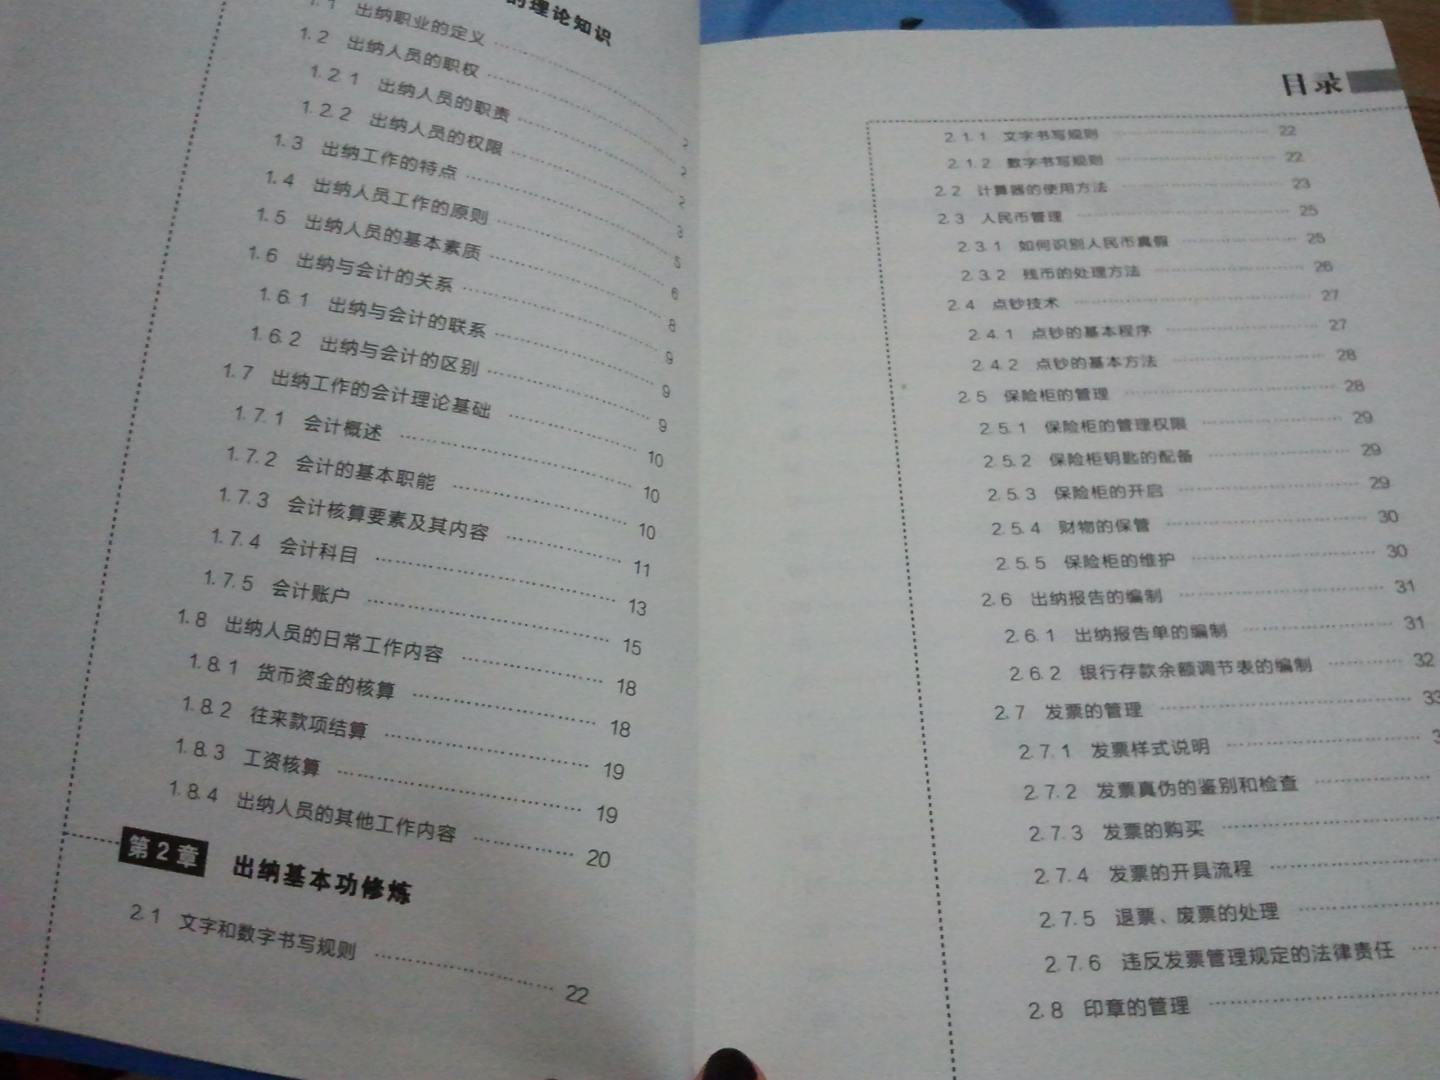 的理论知识
1.1 出纳职业的定义
1.2 出纳人员的职权 2
1.2.1 出纳人员的职责 2
1.2.2 出纳人员的权限 2
1.3 出纳工作的特点 3
1.4 出纳人员工作的原则 5
1.5 出纳人员的基本素质 6
1.6 出纳与会计的关系 8
1.6.1 出纳与会计的联系 9
1.6.2 出纳与会计的区别 9
1.7 出纳工作的会计理论基础 9
1.7.1 会计概述 10
1.7.2 会计的基本职能 10
1.7.3 会计核算要素及其内容 10
1.7.4 会计科目 11
1.7.5 会计账户 13
1.8 出纳人员的日常工作内容 15
1.8.1 货币资金的核算 18
1.8.2 往来款项结算 18
1.8.3 工资核算 19
1.8.4 出纳人员的其他工作内容 19
20
第2章 出纳基本功修炼
2.1 文字和数字书写规则 22
目录
2.1.1 文字书写规则 22
2.1.2 数字书写规则 22
2.2 计算器的使用方法 23
2.3 人民币管理 25
2.3.1 如何识别人民币真假 25
2.3.2 残币的处理方法 26
2.4 点钞技术 27
2.4.1 点钞的基本程序 27
2.4.2 点钞的基本方法 28
2.5 保险柜的管理 28
2.5.1 保险柜的管理权限 29
2.5.2 保险柜钥匙的配备 29
2.5.3 保险柜的开启 29
2.5.4 财物的保管 30
2.5.5 保险柜的维护 30
2.6 出纳报告的编制 31
2.6.1 出纳报告单的编制 31
2.6.2 银行存款余额调节表的编制 32
2.7 发票的管理 33
2.7.1 发票样式说明
2.7.2 发票真伪的鉴别和检查
2.7.3 发票的购买
2.7.4 发票的开具流程
2.7.5 退票、废票的处理
2.7.6 违反发票管理规定的法律责任
2.8 印章的管理